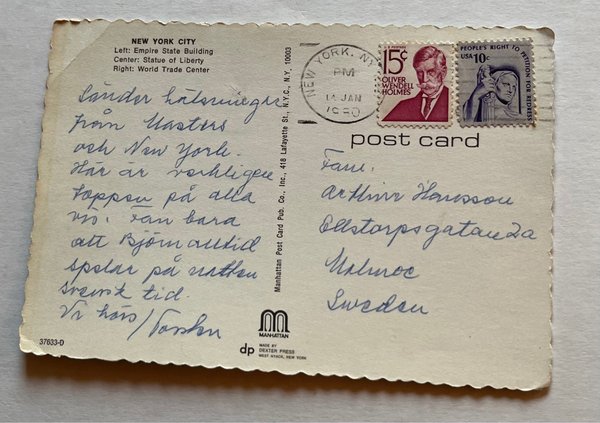 NEW YORK CITY
Left: Empire State Building
Center: Statue of Liberty
Right: World Trade Center
Sänder hälsningar
från Masters
och New York.
Här är verkligen
toppen på alla
vis. Fan bara
att Björn alltid
spelar på natten
svensk tid.
Vi hörs
37633-D
Manhattan Post Card Pub. Co., Inc., 418 Lafayette St., N.Y.C., N.Y. 10003
MANHATTAN
dp
MADE BY
DEXTER PRESS
WEST NYACK, NEW YORK
NEW YORK, NY
PM
14 JAN
1980
15¢
OLIVER
WENDELL
HOLMES
PEOPLE'S RIGHT TO PETITION FOR REDRESS
USA 10c
post card
Fam.
Arthur Hansson
Ellstorpsgatan 2a
Malmoe
Sweden